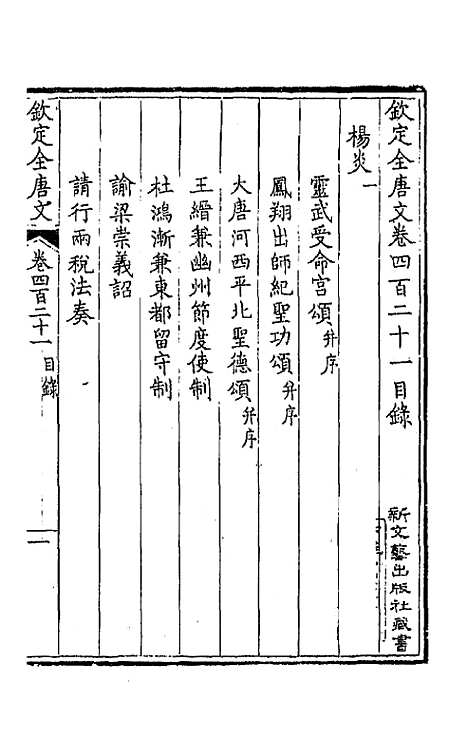 欽定全唐文卷四百二十一目錄
新文藝出版社藏書
楊炎一
靈武受命宮頌并序
鳳翔出師紀聖功頌并序
大唐河西平北聖德頌并序
王縉兼幽州節度使制
杜鴻漸兼東都留守制
諭梁崇義詔
請行兩稅法奏
欽定全唐文 卷四百二十一目錄 一